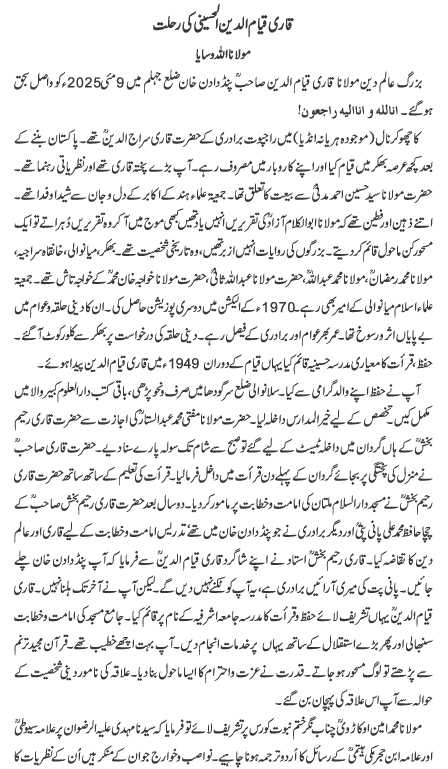 قاری قیام الدین الحسینی کی رحلت
مولانا اللہ وسایا
بزرگ عالم دین مولانا قاری قیام الدین صاحبؒ پنڈ دادن خان ضلع جہلم میں 9 مئی 2025ء کو واصل بحق
ہوگئے۔ اناللہ و انا الیہ راجعون!
کا چھو کرنال (موجودہ ہریانہ انڈیا) میں راجپوت برادری کے حضرت قاری سراج الدینؒ تھے۔ پاکستان بننے کے
بعد کچھ عرصہ بھکر میں قیام کیا اور اپنے کاروبار میں مصروف رہے۔ آپ بڑے پختہ قاری تھے اور نظریاتی رہنما تھے۔
حضرت مولانا سید حسین احمد مدنیؒ سے بیعت کا تعلق تھا۔ جمعیۃ علماء ہند کے اکابر کے دل و جان سے شیدا و فدا تھے۔
اتنے ذہین اور فطین تھے کہ مولانا ابوالکلام آزادؒ کی تقریریں انہیں یاد تھیں کبھی موج میں آکر وہ تقریریں دہراتے تو ایک
مسحور کن ماحول قائم کر دیتے۔ بزرگوں کی روایات انہیں ازبر تھیں، وہ تاریخی شخصیت تھے۔ بھکر، میانوالی، خانقاہ سراجیہ،
مولانا محمد رمضانؒ، مولانا محمد عبداللہؒ، حضرت مولانا عبداللہ ثانیؒ، حضرت مولانا خواجہ خان محمدؒ کے خواجہ تاش تھے۔ جمعیۃ
علماء اسلام میانوالی کے امیر بھی رہے۔ 1970ء کے الیکشن میں دوسری پوزیشن حاصل کی۔ ان کا دینی حلقہ و عوام میں
بے پایاں اثر و رسوخ تھا۔ عمر بھر عوام اور برادری کے فیصل رہے۔ دینی حلقہ کی درخواست پر بھکر سے کلور کوٹ آگئے۔
حفظ، قرأت کا معیاری مدرسہ حسینیہ قائم کیا یہاں قیام کے دوران 1949ء میں قاری قیام الدین پیدا ہوئے۔
آپ نے حفظ اپنے والد گرامی سے کیا۔ سلانوالی ضلع سرگودھا میں صرف و نحو پڑھی، باقی کتب دارالعلوم کبیر والا میں
مکمل کیں۔ تخصص کے لیے خیر المدارس داخلہ لیا۔ حضرت مولانا مفتی محمد عبدالستارؒ کی اجازت سے حضرت قاری رحیم
بخشؒ کے ہاں گردان میں داخلہ ٹیسٹ کے لیے گئے تو صبح سے شام تک سولہ پارے سنا دیے۔ حضرت قاری صاحبؒ
نے منزل کی پختگی پر بجائے گردان کے پہلے دن قرأت میں داخل فرمالیا۔ قرأت کی تعلیم کے ساتھ ساتھ حضرت قاری
رحیم بخشؒ نے مسجد دارالسلام ملتان کی امامت و خطابت پر مامور کر دیا۔ دو سال بعد حضرت قاری رحیم بخش صاحبؒ کے
چچا حافظ محمد علی پانی پتیؒ اور دیگر برادری نے جو پنڈ دادن خان میں تھے، تدریس امامت و خطابت کے لیے قاری اور عالم
دین کا تقاضہ کیا۔ قاری رحیم بخشؒ استاد نے اپنے شاگرد قاری قیام الدینؒ سے فرمایا کہ آپ پنڈ دادن خان چلے
جائیں۔ پانی پت کی میری آرائیں برادری ہے، یہ آپ کو نکلنے نہیں دیں گے۔ لیکن آپ نے آخر تک ہلنا نہیں۔ قاری
قیام الدینؒ یہاں تشریف لائے حفظ و قرأت کا مدرسہ جامعہ اشرفیہ کے نام پر قائم کیا۔ جامع مسجد کی امامت و خطابت
سنبھالی اور پھر بڑے استقلال کے ساتھ یہاں پر خدمات انجام دیں۔ آپ بہت اچھے خطیب تھے۔ قرآن مجید ترنم
سے پڑھتے تو لوگ مسحور ہو جاتے۔ قدرت نے عزت و احترام کا ایسا ماحول بنا دیا۔ علاقہ کی نامور دینی شخصیت کے
حوالہ سے آپ اس علاقہ کی پہچان بن گئے۔
مولانا محمد امین اوکاڑویؒ چناب نگر ختم نبوت کورس پر تشریف لائے تو فرمایا کہ سیدنا مہدی علیہ الرضوان پر علامہ سیوطیؒ
اور علامہ ابن حجر مکی ہیتمیؒ کے رسائل کا اُردو ترجمہ ہونا چاہیے۔ نواصب و خوارج جو ان کے منکر ہیں اُن کے نظریات کا